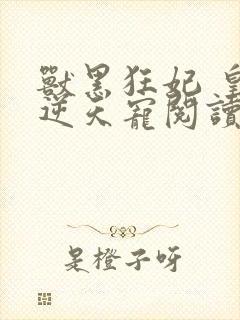 獸黑狂妃 皇
逆天寵閱讀
是橙子呀